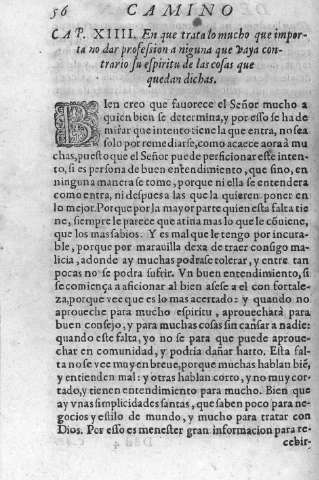 56 CAMINO
CAP. XIIII. En que trata lo mucho que impor-
ta no dar profession a niguna que vaya con-
trario su espiritu de las cosas que
quedan dichas.
BIen creo que fauorece el Señor mucho a
quien bien se determina, y por esso se ha de
mirar que intento tiene la que entra, no sea
solo por remediarse, como acaece aora à mu
chas, puesto que el Señor puede perficionar este inten-
to, si es persona de buen entendimiento, que sino, en
ninguna manera se tome, porque ni ella se entendera
como entra, ni despues a las que la quieren poner en
lo mejor. Porque por la mayor parte quien esta falta tie
ne, siempre le parece que atina mas lo que le cõuiene,
que los mas sabios. Y es mal que le tengo por incura-
ble, porque por marauilla dexa de traer consigo mali-
cia, adonde ay muchas podrase tolerar, y entre tan
pocas no se podra sufrir. Vn buen entendimiento, si
se comiença a aficionar al bien asese a el con fortale-
za, porque vee que es lo mas acertado: y quando no
aproueche para mucho espiritu, aprouecharà para
buen consejo, y para muchas cosas sin cansar a nadie:
quando este falta, yo no se para que puede aproue-
char en comunidad, y podria dañar harto. Esta fal-
ta no se vee muy en breue, porque muchas hablan biẽ,
y entienden mal: y otras hablan corto, y no muy cor-
tado, y tienen entendimiento para mucho. Bien que
ay vnas simplicidades santas, que saben poco para ne-
gocios y estilo de mundo, y mucho para tratar con
Dios. Por esso es menester gran informacion para re-
cebir-